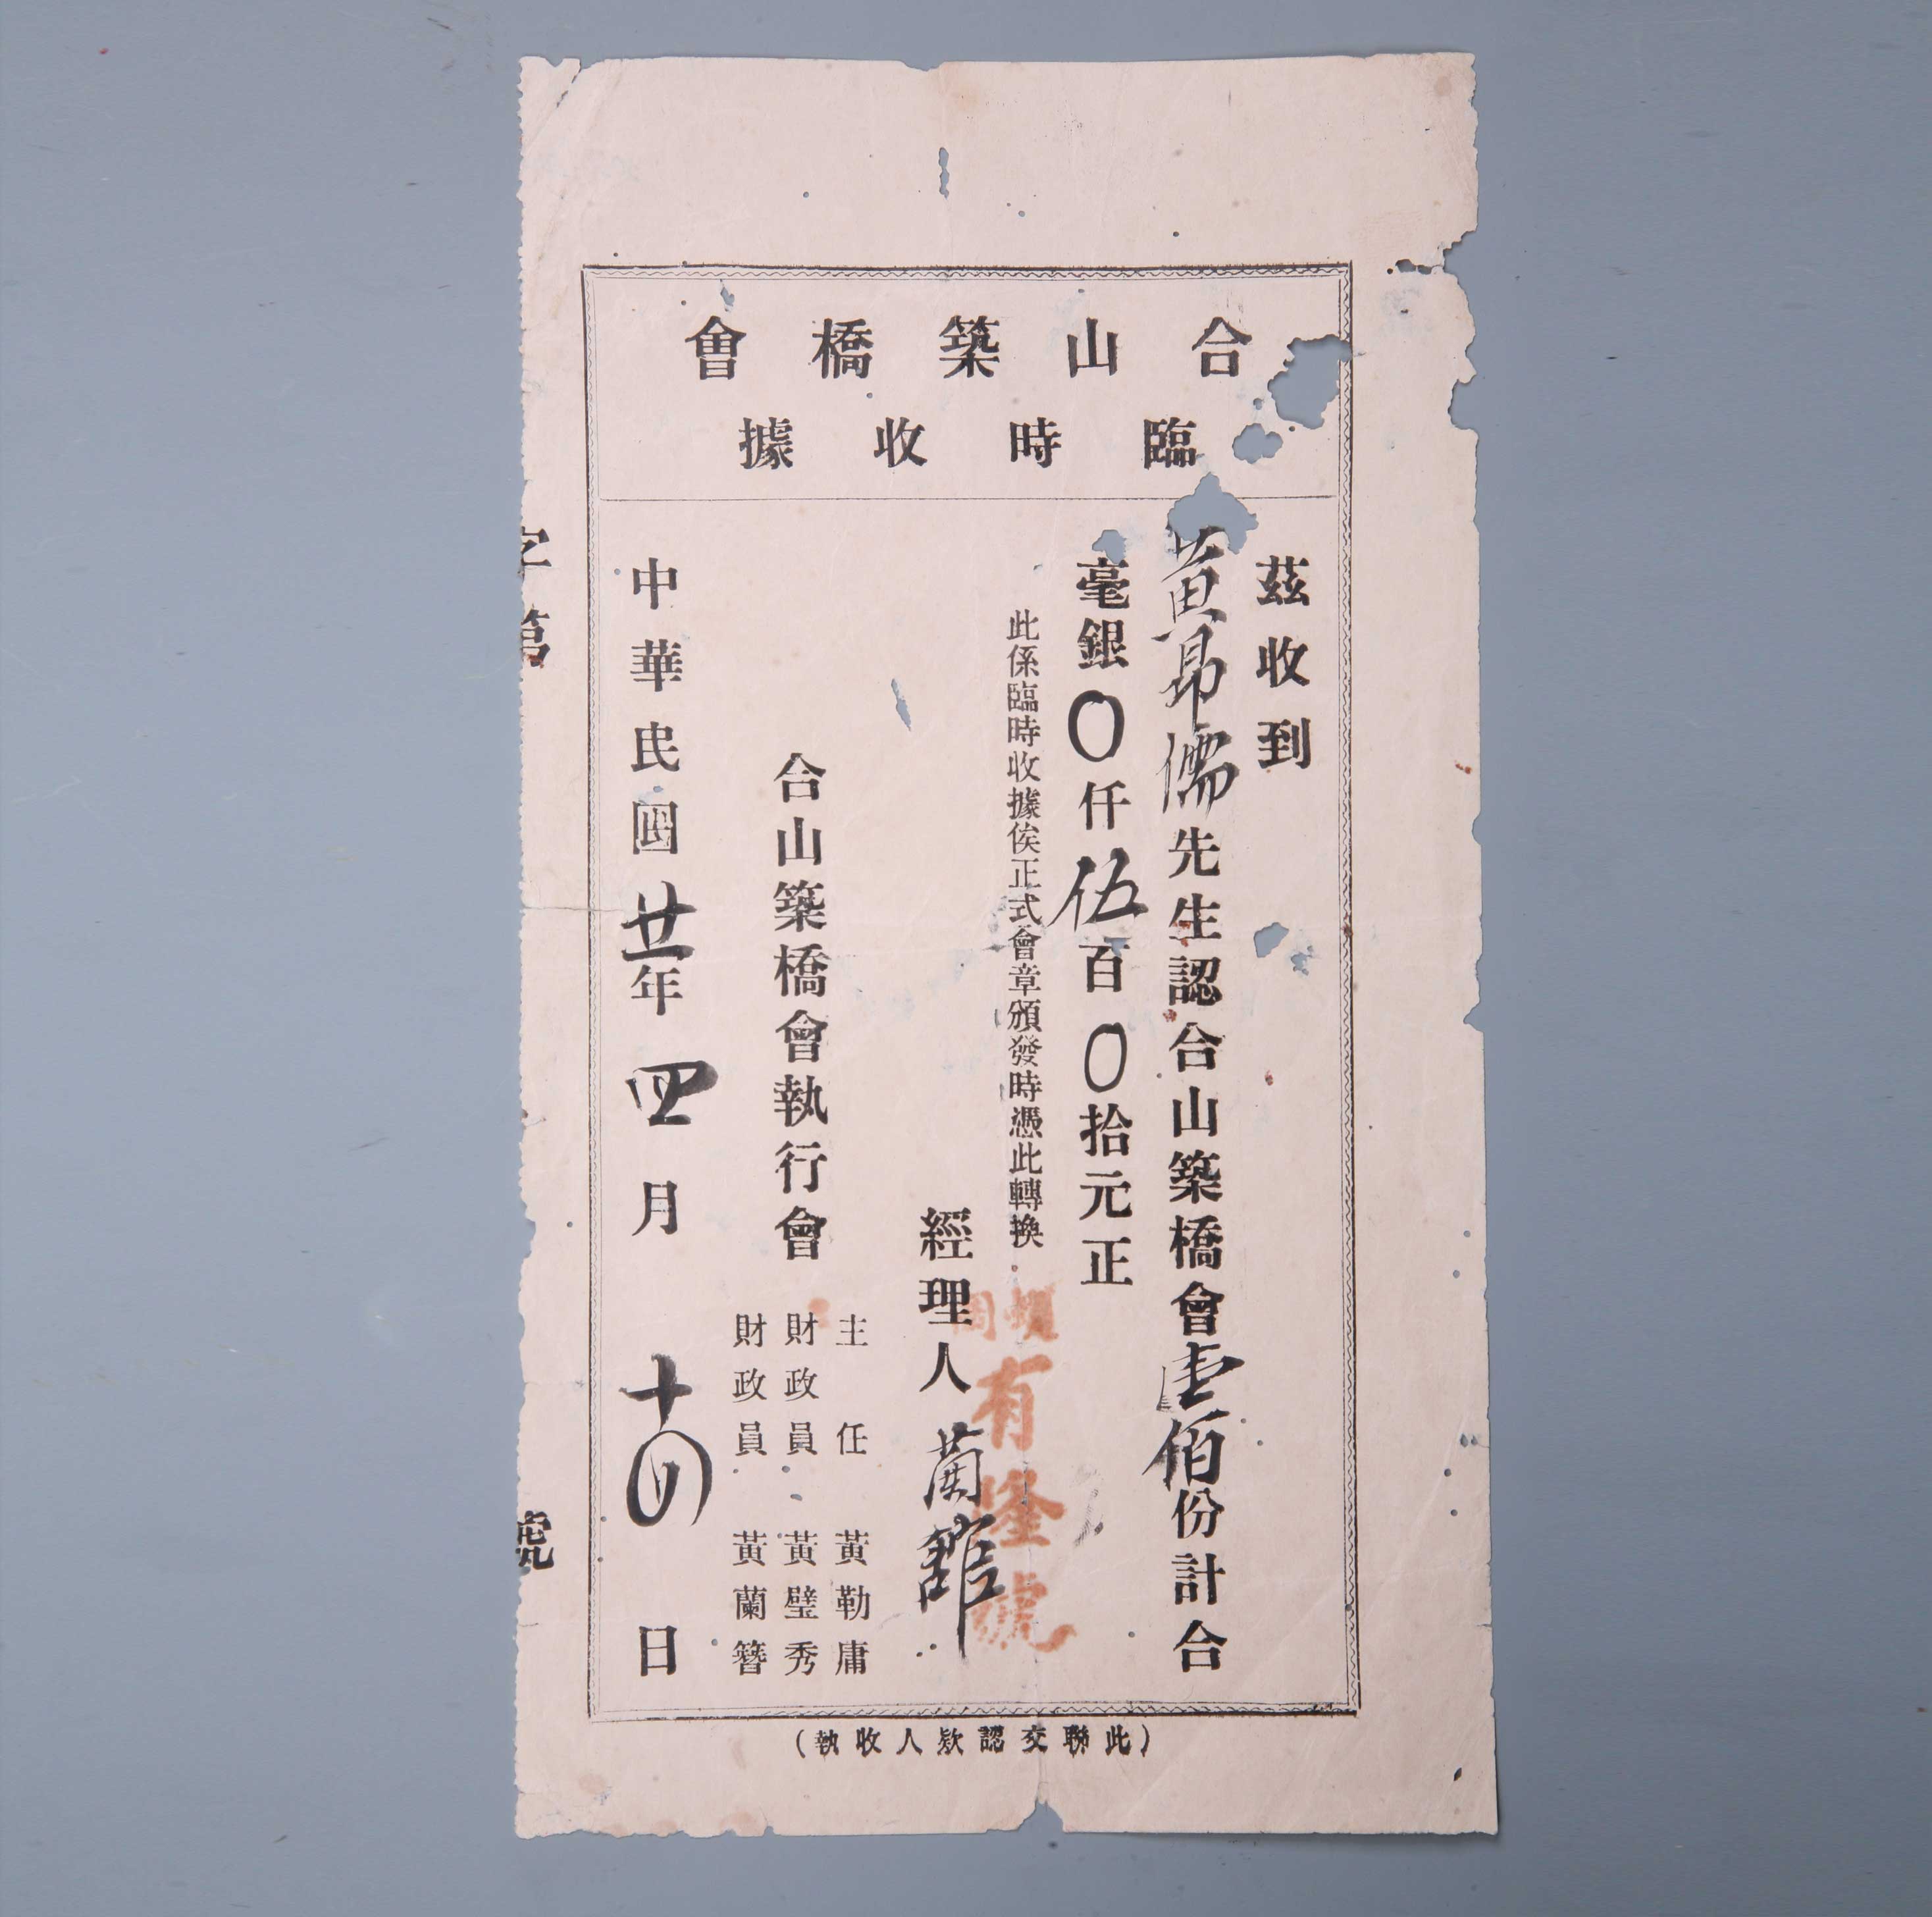 合山築橋會
臨時收據
茲收到
黃昴儒先生認合山築橋會壹佰份計合
毫銀〇仟伍百〇拾元正
此係臨時收據俟正式會章頒發時憑此轉換
經理人蘭舘
有隆號
合山築橋會執行會
主任 黃勒庸
財政員 黃璧秀
財政員 黃蘭簪
中華民國廿一年四月十四日
字第 號
(此聯交認欵人收執)